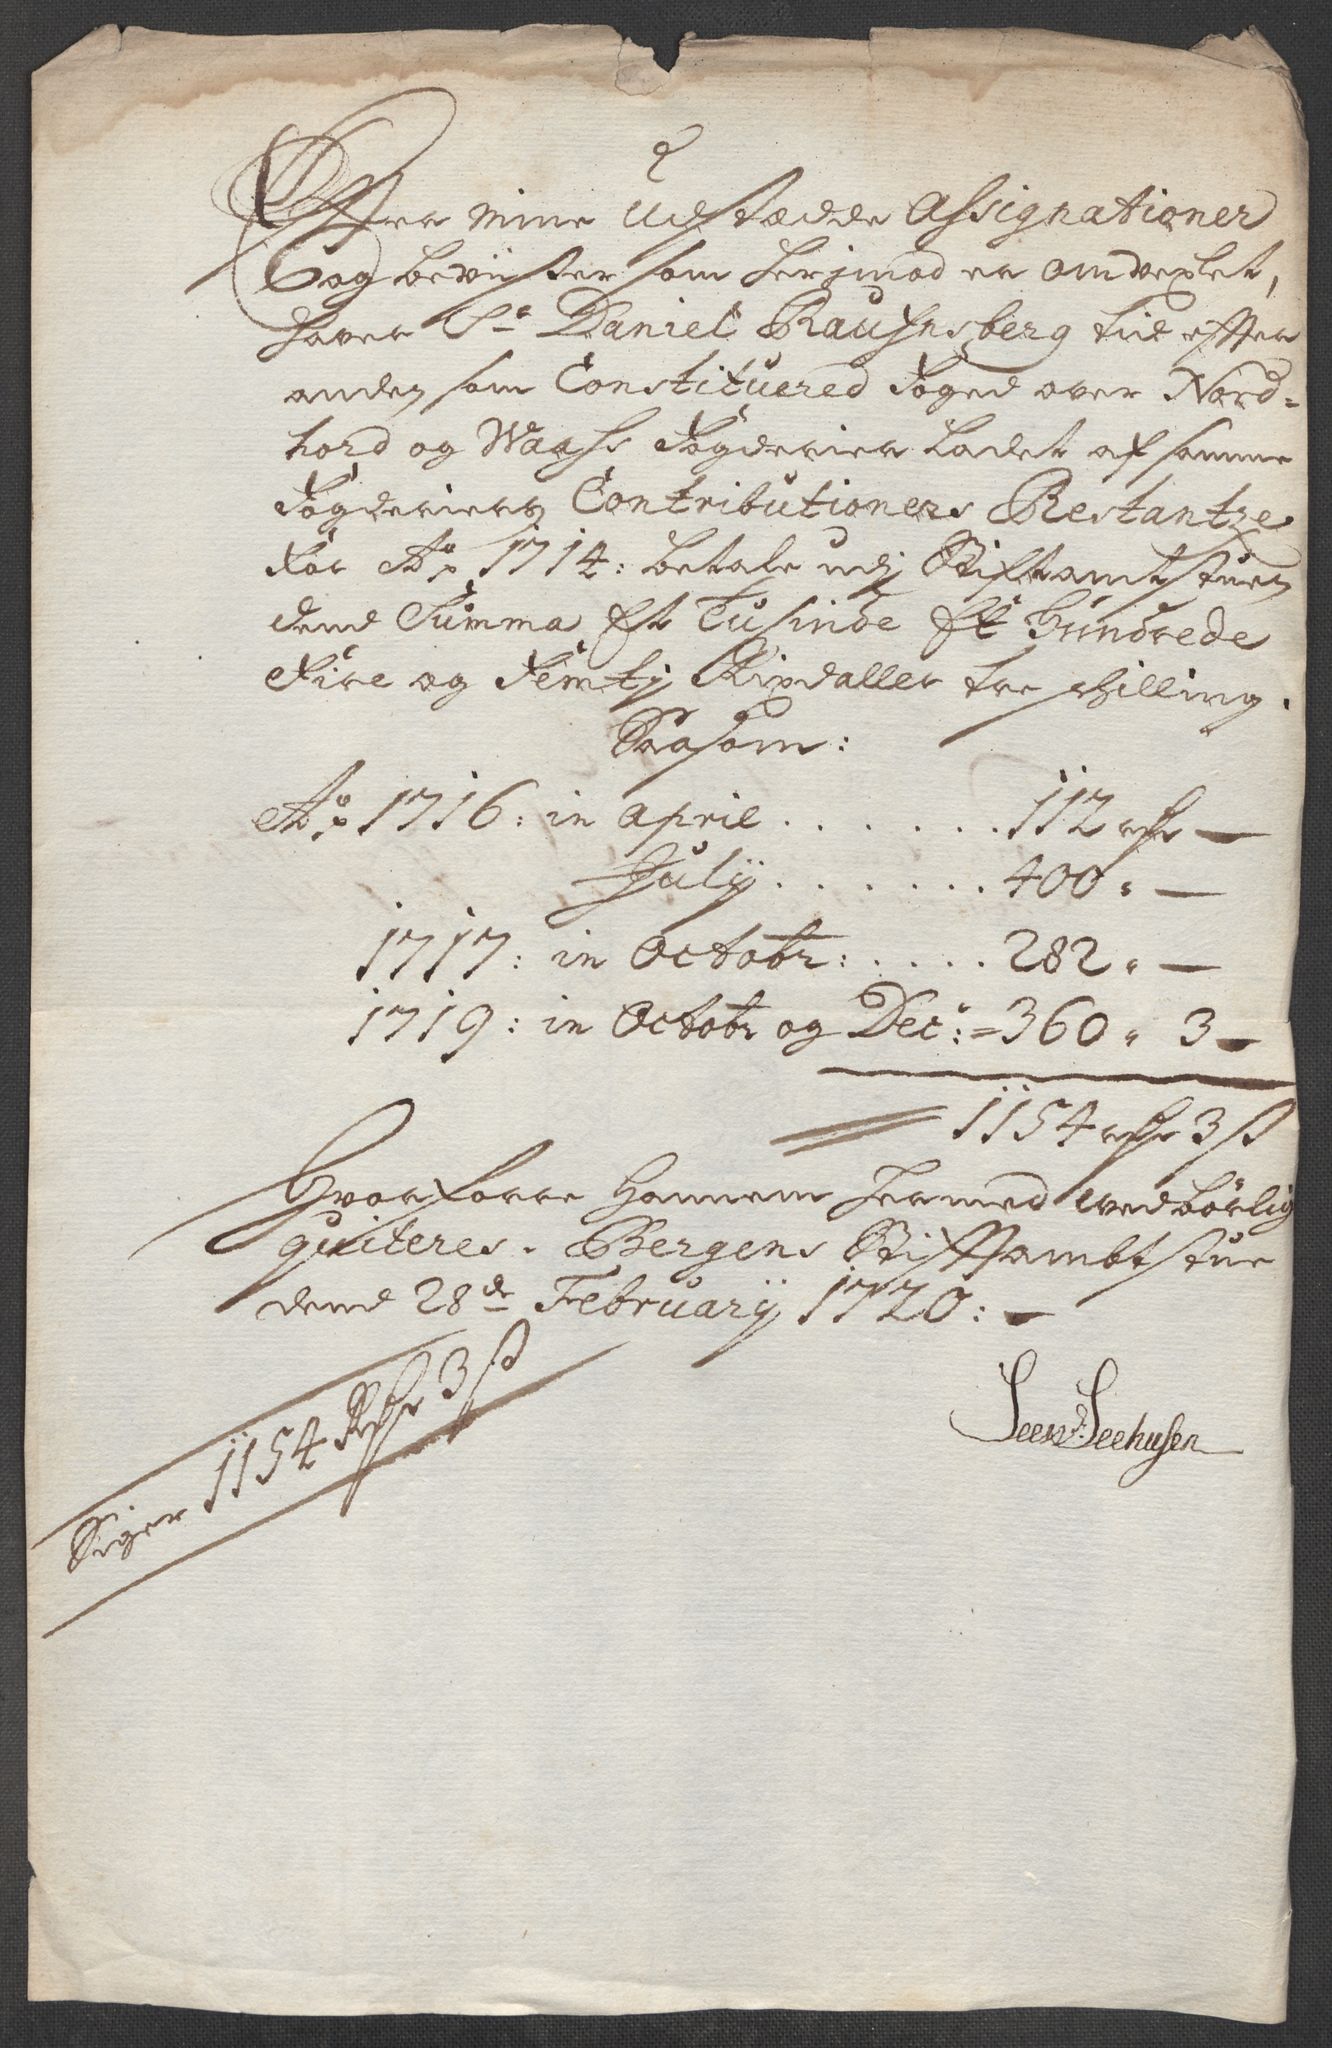 Effter mine Udstædde Assignationer
og beviister som herjmod er omvexlet,
haver Sr Daniel Rausnsberg tiid effter
anden som Constituered Foged over Nord-
hord og Waahs Fogderier ladet af samme
Fogderiers Contributioners Restantze
for Ao 1714: betale udj Stiftamtstuen
dend Summa Et Tusinde Et Hundrede
Fire og Femtij Rixdaller tre schilling.
Saasom:
Ao 1716: in April . . . . . . . 112 rdr —
July . . . . . . . 400 " —
1717: in Octobr: . . . . . 282 " —
1719: in Octobr og Decr: = 360 " 3 —
1154 rdr 3 s
Hvorforre hannem hermed vedbørlig
quiteres. Bergens Stifftsambtstue
dend 28de February 1720: —
Seehusen
Siger 1154 Rdr 3 s